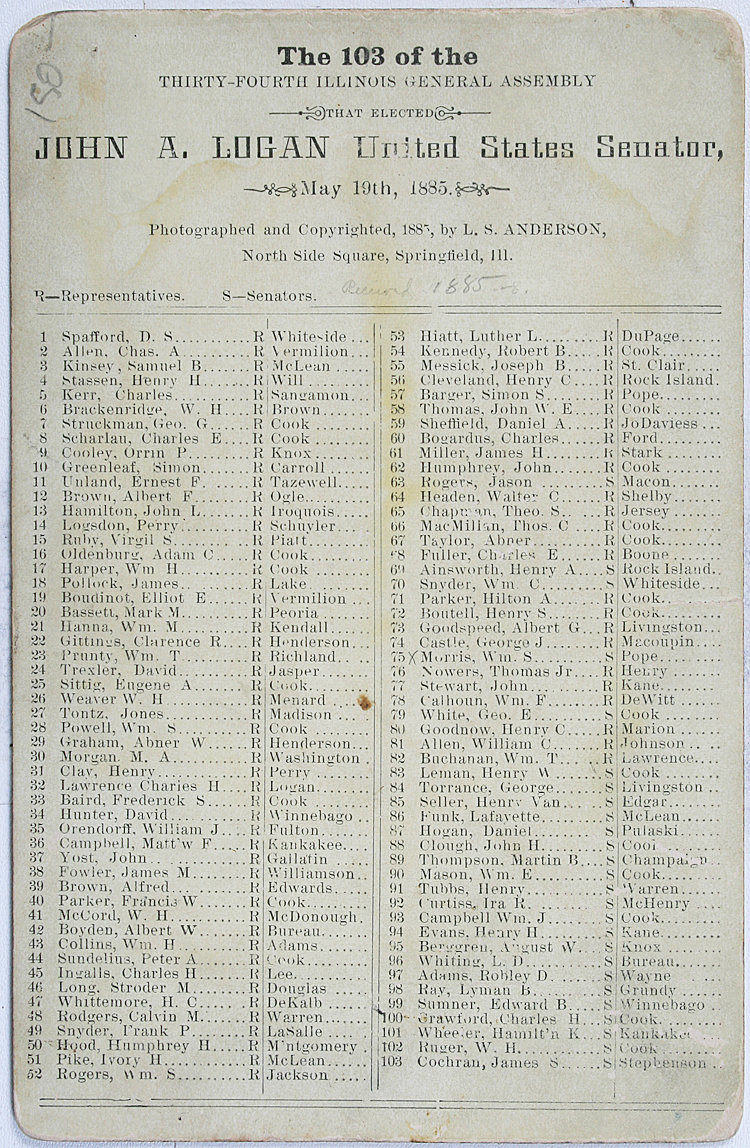 The 103 of the
THIRTY-FOURTH ILLINOIS GENERAL ASSEMBLY
THAT ELECTED
JOHN A. LOGAN United States Senator,
May 19th, 1885.
Photographed and Copyrighted, 1885, by L. S. ANDERSON,
North Side Square, Springfield, Ill.
1885
R—Representatives. S—Senators.
1 Spafford, D. S. R Whiteside
2 Allen, Chas. A. R Vermilion
3 Kinsey, Samuel B. R McLean
4 Stassen, Henry H. R Will
5 Kerr, Charles R Sangamon
6 Brackenridge, W. H. R Brown
7 Struckman, Geo. G. R Cook
8 Scharlau, Charles E. R Cook
9 Cooley, Orrin P. R Knox
10 Greenleaf, Simon R Carroll
11 Unland, Ernest F. R Tazewell
12 Brown, Albert F. R Ogle
13 Hamilton, John L. R Iroquois
14 Logsdon, Perry R Schuyler
15 Ruby, Virgil S. R Piatt
16 Oldenburg, Adam C. R Cook
17 Harper, Wm H. R Cook
18 Pollock, James R Lake
19 Boudinot, Elliot E. R Vermilion
20 Bassett, Mark M. R Peoria
21 Hanna, Wm. M. R Kendall
22 Gittings, Clarence R. R Henderson
23 Prunty, Wm. T. R Richland
24 Trexler, David R Jasper
25 Sittig, Eugene A. R Cook
26 Weaver W. H. R Menard
27 Tontz, Jones R Madison
28 Powell, Wm. S. R Cook
29 Graham, Abner W. R Henderson
30 Morgan. M. A. R Washington
31 Clay, Henry R Perry
32 Lawrence Charles H. R Logan
33 Baird, Frederick S. R Cook
34 Hunter, David R Winnebago
35 Orendorff, William J. R Fulton
36 Campbell, Matt'w F. R Kankakee
37 Yost, John R Gallatin
38 Fowler, James M. R Williamson
39 Brown, Alfred R Edwards
40 Parker, Francis W. R Cook
41 McCord, W. H. R McDonough
42 Boyden, Albert W. R Bureau
43 Collins, Wm. H. R Adams
44 Sundelius, Peter A. R Cook
45 Ingalls, Charles H. R Lee
46 Long, Stroder M. R Douglas
47 Whittemore, H. C. R DeKalb
48 Rodgers, Calvin M. R Warren
49 Snyder, Frank P. R LaSalle
50 Hood, Humphrey H. R M'ntgomery
51 Pike, Ivory H. R McLean
52 Rogers, Wm. S. R Jackson
53 Hiatt, Luther L. R DuPage
54 Kennedy, Robert B. R Cook
55 Messick, Joseph B. R St. Clair
56 Cleveland, Henry C. R Rock Island
57 Barger, Simon S. R Pope
58 Thomas, John W. E. R Cook
59 Sheffield, Daniel A. R JoDaviess
60 Bogardus, Charles R Ford
61 Miller, James H. R Stark
62 Humphrey, John R Cook
63 Rogers, Jason S Macon
64 Headen, Walter C. R Shelby
65 Chapman, Theo. S. R Jersey
66 MacMillan, Thos. C. R Cook
67 Taylor, Abner R Cook
68 Fuller, Charles E. R Boone
69 Ainsworth, Henry A. S Rock Island
70 Snyder, Wm. C. S Whiteside
71 Parker, Hilton A. R Cook
72 Boutell, Henry S. R Cook
73 Goodspeed, Albert G. R Livingston
74 Castle, George J. R Macoupin
75 X Morris, Wm. S. S Pope
76 Nowers, Thomas Jr. R Henry
77 Stewart, John R Kane
78 Calhoun, Wm. F. R DeWitt
79 White, Geo. E. S Cook
80 Goodnow, Henry C. R Marion
81 Allen, William C. R Johnson
82 Buchanan, Wm. T. R Lawrence
83 Leman, Henry W. S Cook
84 Torrance, George S Livingston
85 Seller, Henry Van S Edgar
86 Funk, Lafayette S McLean
87 Hogan, Daniel S Pulaski
88 Clough, John H. S Cook
89 Thompson, Martin B. S Champaign
90 Mason, Wm. E. S Cook
91 Tubbs, Henry S Warren
92 Curtiss, Ira R. S McHenry
93 Campbell Wm. J. S Cook
94 Evans, Henry H. S Kane
95 Berggren, August W. S Knox
96 Whiting, L. D. S Bureau
97 Adams, Robley D. S Wayne
98 Ray, Lyman B. S Grundy
99 Sumner, Edward B. S Winnebago
100 Crawford, Charles H. S Cook
101 Wheeler, Hamilt'n K. S Kankakee
102 Ruger, W. H. S Cook
103 Cochran, James S. S Stephenson